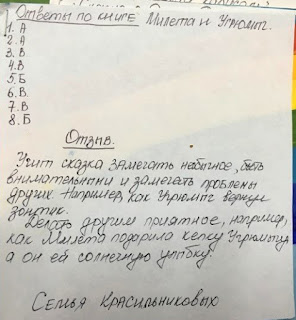 Ответы по книге Милета и Угрюмпг.
1. А
2. А
3. В
4. В
5. Б
6. В.
7. В
8. Б
Отзыв.
Учит сказка замечать необычное, быть
внимательными и замечать проблемы
других. Например, как Угрюмпг вернул
зонтик.
Делать другим приятное, например,
как Милета подарила кепку Угрюмпгу,
а он ей солнечную улыбку.
Семья Красильниковых